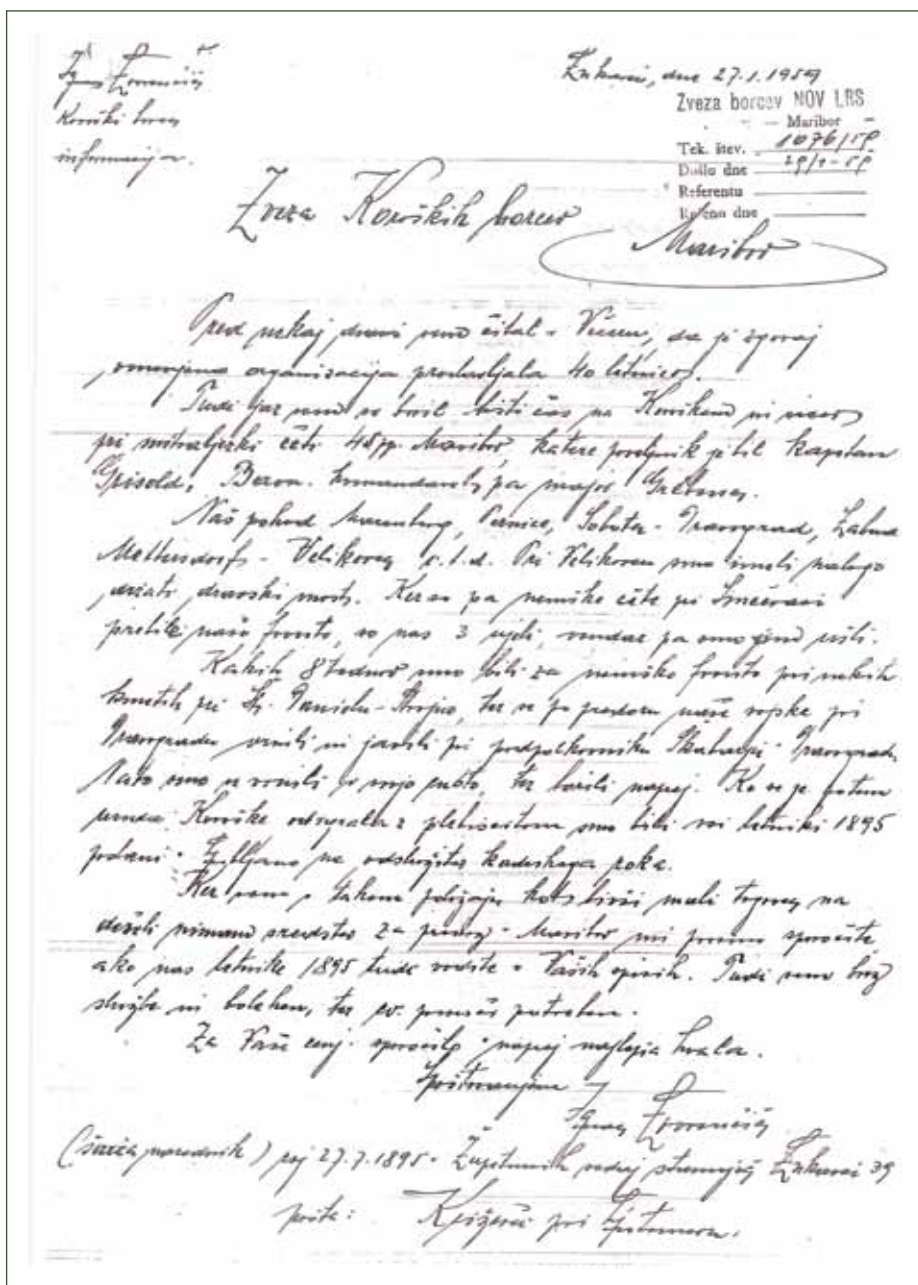 Koroški borec
informacija.
dne 27.1.1959
Zveza borcev NOV LRS
Maribor
Tek. štev. 1076/59
Došlo dne 29/1-59
Referentu
Rešeno dne
Zveza Koroških borcev
Maribor
Pred nekaj dnevi sem čital v Večeru, da je zgoraj
omenjena organizacija proslavljala 40 letnico.
Tudi jaz sem se boril tisti čas na Koroškem in sicer
pri mitraljezki četi 45 pp. Maribor, katere poveljnik je bil kapetan
Grisold, komandant pa major
Naš pohod Marenberg, Pernice, Sobota - Dravograd, Labud
Velikovec i.t.d. Pri Velikovcu smo imeli nalogo
držati dravski most. Ker so pa nemške čete pri Sinčivasi
prebile našo fronto, so nas 3 ujeli, vendar pa smo ušli.
Kakih 8 tednov smo bili za nemško fronto pri nekih
kmetih pri Št. Danielu - Strojna, ter se po prodoru naše vojske pri
Dravogradu vrnili in javili pri podpolkovniku Dravograd.
Nato smo se vrnili v svojo edinico, ter borili naprej. Ko se je potem
usoda Koroške odigrala s plebiscitom smo bili vsi letniki 1895
poslani v Ljubljano na odsluženje kadrskega roka.
Ker sem v takem položaju kot bivši mali trgovec na
deželi nimam sredstev za prevoz v Maribor mi prosim sporočite,
ako nas letnike 1895 tudi vodite v Vaših spisih. Tudi sem brez
službe in bolehen, ter sv. pomoči potreben.
Za Vaše cenj. sporočilo naprej najlepša hvala.
Spoštovanjem
Ignac
(šarža narednik) roj 27.7.1895 - 39
pošta: Križevci pri Ljutomeru.